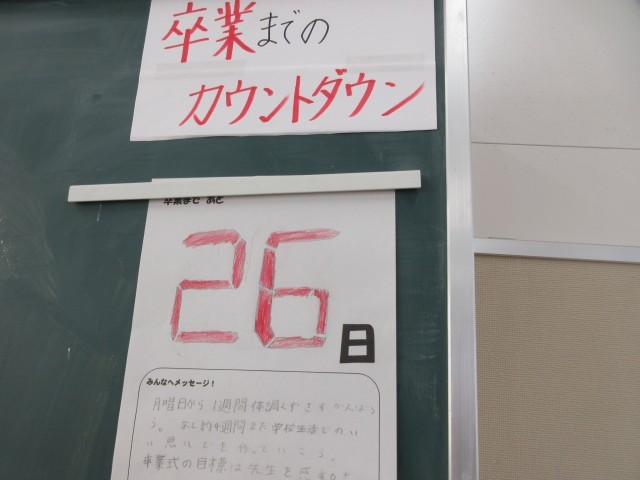 卒業までの
カウントダウン
卒業まで あと
26
日
みんなへメッセージ！
月曜日から1週間体調くずさずがんばろ
う。あと約4週間また学校生活でのい
い思いでを作っていこう。
卒業式の目標は先生を